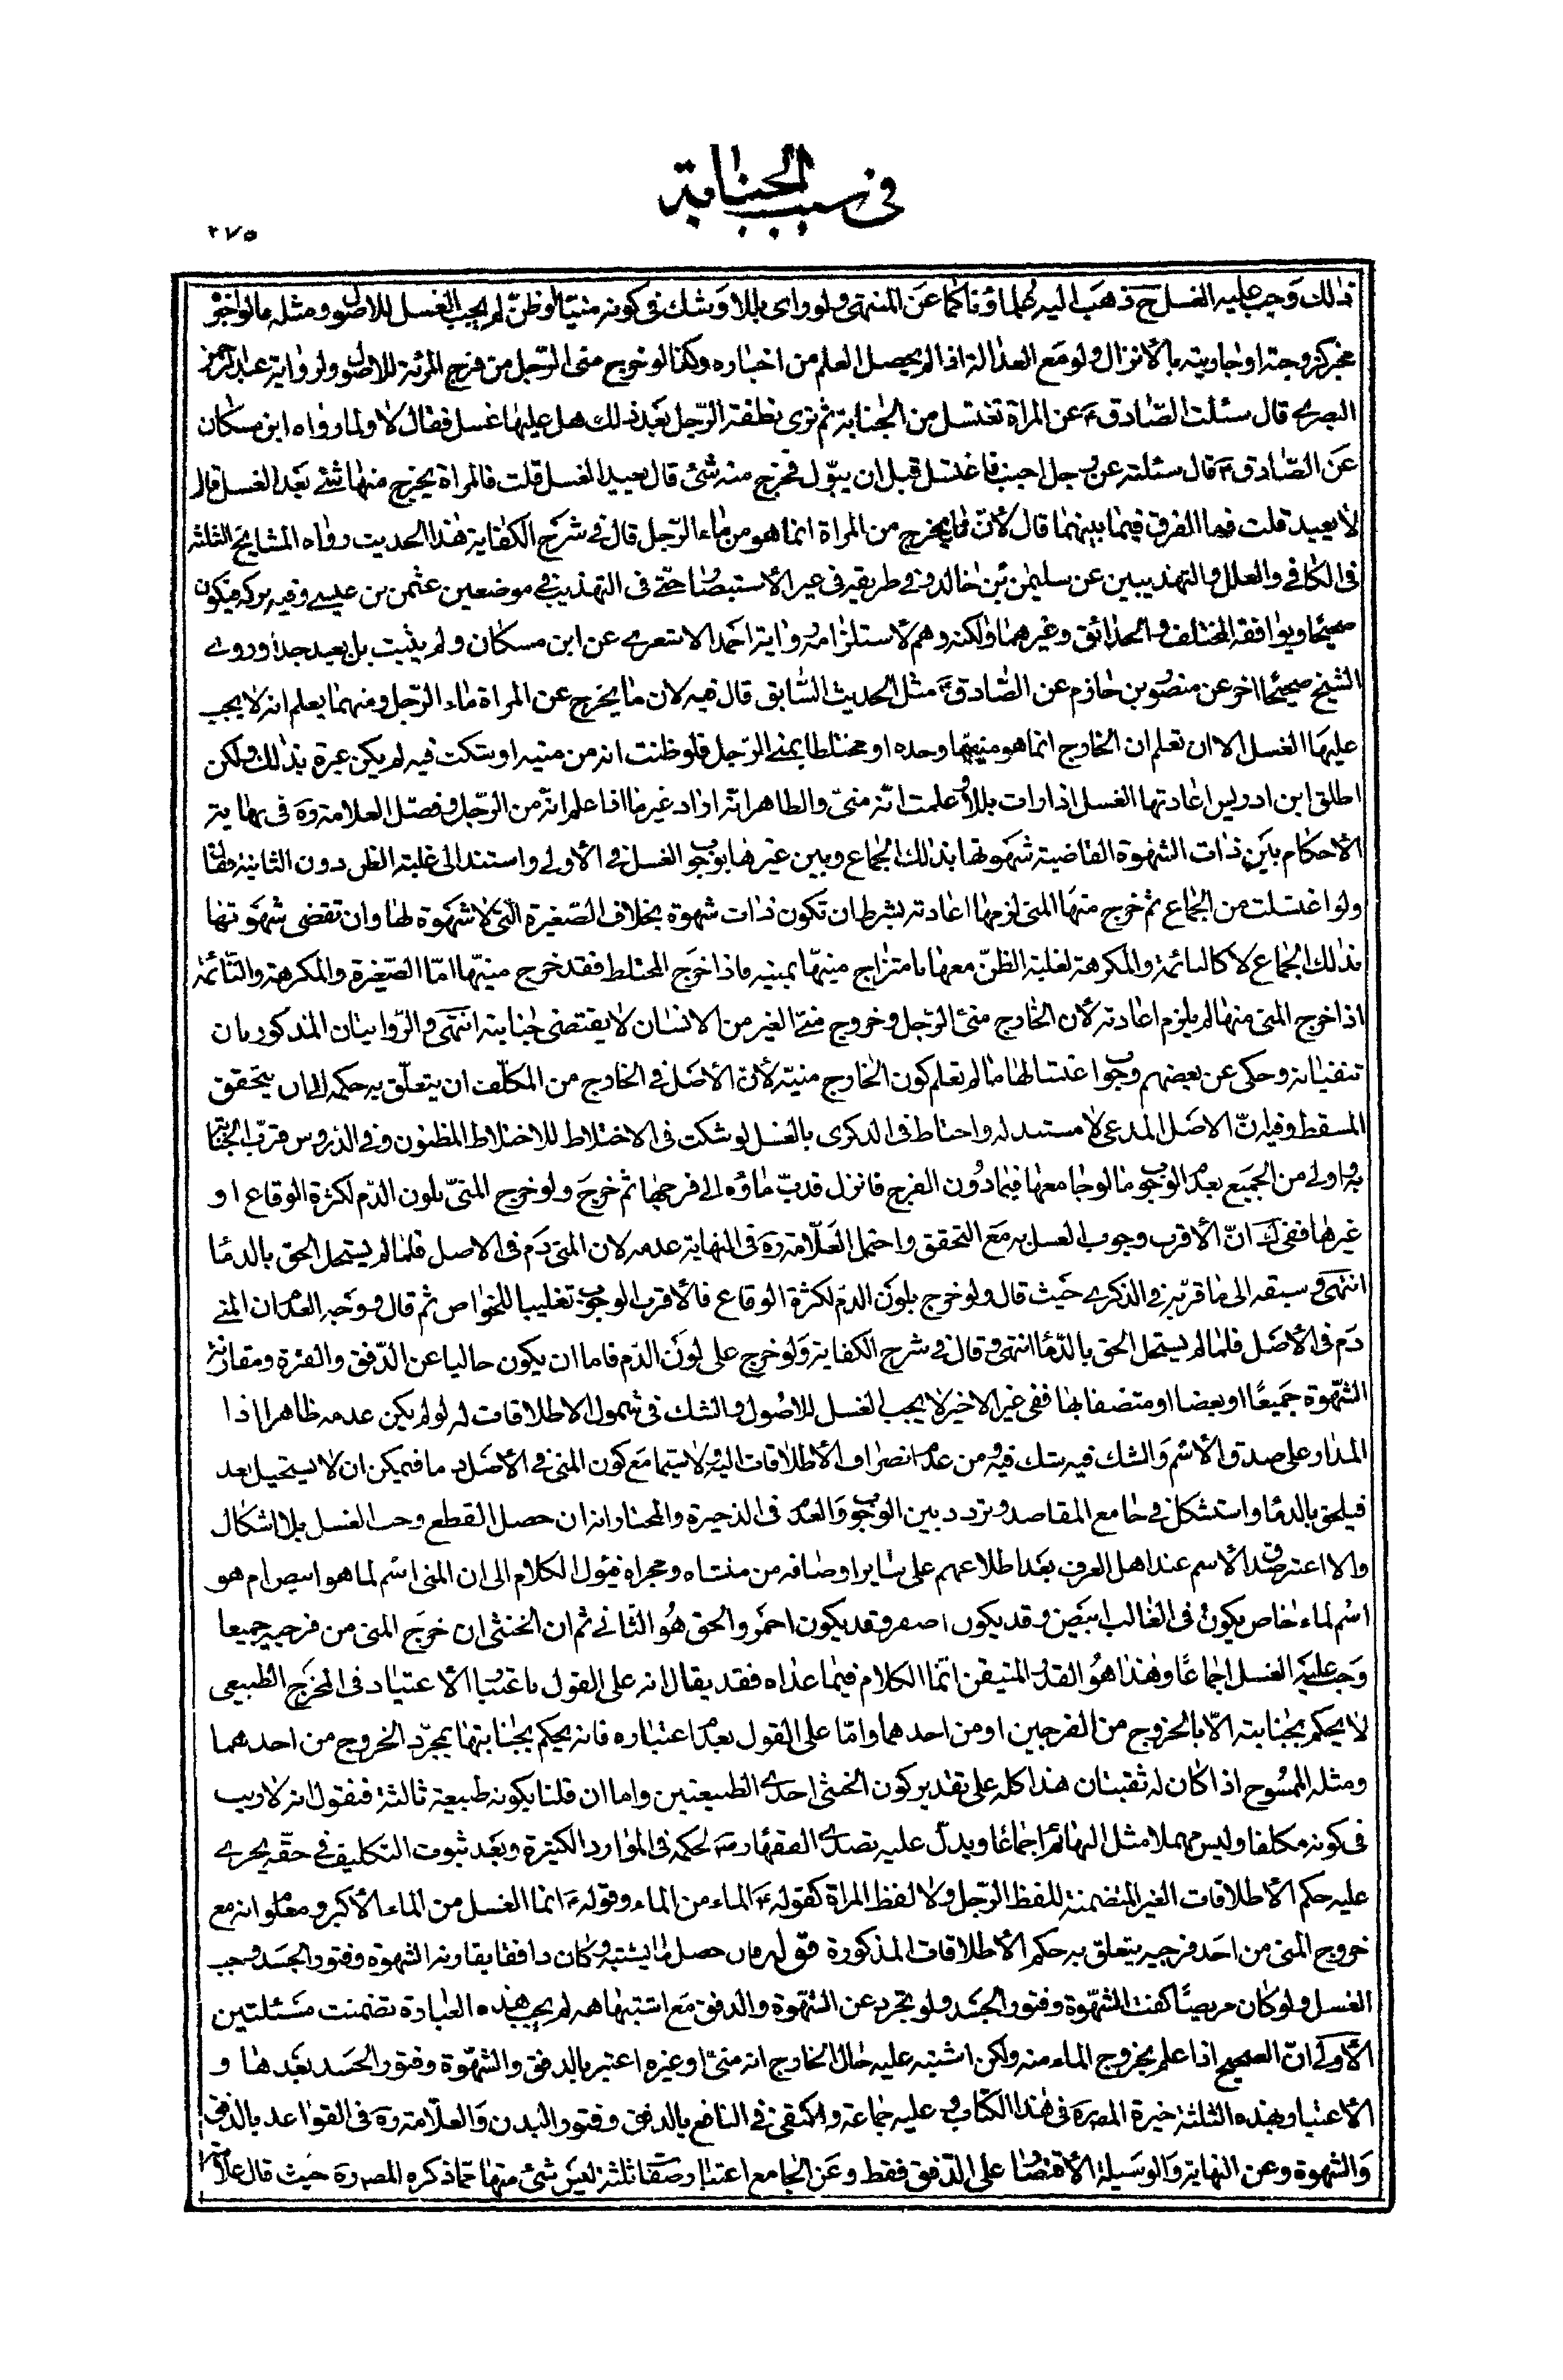 في سبب الجنابة
٢٧٥
ذلك وجب عليه الغسل ح ذهب اليه علماؤنا كما عن المنتهى ولو راى بللا وشك في كونه منيا او ظن لم يجب الغسل للاصول ومثله ما لو اخبره
مخبر كزوجته او جاريته بالانزال ولو مع العدالة اذا لم يحصل العلم من اخباره وكذا لو خرج منى الرّجل من فرج المرئة للاصول ولرواية عبد الرحمن
البصرى قال سئلت الصّادق ع عن المراة تغتسل من الجنابة ثم ترى نطفة الرّجل بعد ذلك هل عليها غسل فقال لا ولما رواه ابن مسكان
عن الصّادق ع قال سئلته عن رجل اجنب فاغتسل قبل ان يبول فخرج منه شئ قال يعيد الغسل قلت فالمراة يخرج منها شئ بعد الغسل قال
لا يعيد قلت فما الفرق فيما بينهما قال لانّ ما يخرج من المراة انما هو من ماء الرّجل قال في شرح الكفاية هذا الحديث رواه المشايخ الثلثة
في الكافي والعلل والتهذيبين عن سليمن بن خالد وفي طريقه في غير الاستبصار حتى في التهذيب في موضعين عثمن بن عيسى وفيه بتركه فيكون
صحيحا ويوافقه المختلف والحدائق وغيرهما ولكنه وهم لاستلزامه رواية احمد الاشعرى عن ابن مسكان ولم يثبت بل بعيد جدا وروى
الشيخ صحيحا اخر عن منصور بن حازم عن الصّادق ع مثل الحديث السّابق قال فيه لان ما يخرج عن المراة ماء الرّجل ومنهما يعلم انه لا يجب
عليها الغسل الا ان تعلم ان الخارج انما هو منيها وحده او مختلطا بمنى الرّجل فلو ظنت انه من منيه او شكت فيه لم يكن عبرة بذلك ولكن
اطلق ابن ادريس اعادتها الغسل اذا رات بللا وعلمت انّه منىّ والظاهر انّه اراد غير ما اذا علم انّه من الرّجل وفصّل العلامة ره في نهاية
الاحكام بين ذات الشهوة القاضية شهوتها بذلك الجماع وبين غيرها بوجوب الغسل في الاولى واستند الى غلبة الظن دون الثانية فقال
ولو اغتسلت من الجماع ثم خرج منها المنى لزمها اعادته بشرط ان تكون ذات شهوة بخلاف الصّغيرة الّتى لا شهوة لها وان تقضى شهوتها
بذلك الجماع لا كالنائمة والمكرهة لغلبة الظنّ معها بامتزاج منيّها بمنيه فاذا خرج المختلط فقد خرج منيّها امّا الصّغيرة والمكرهة والنّائمة
اذا خرج المنى منها لم يلزم اعادته لان الخارج منى الرّجل وخروج منىّ الغير من الانسان لا يقتضى جنابته انتهى والرّوايتان المذكورتان
تنفيانه وحكى عن بعضهم وجوب اغتسالها ما لم تعلم كون الخارج منيّه لان الاصل في الخارج من المكلّف ان يتعلّق به حكمه الى ان يتحقق
المسقط وفيه انّ الاصل المدعى لا مستند له واحتاط في الذكرى بالغسل لو شكت في الاختلاط للاختلاط المظنون وفي الدروس قرّب الجنابة
به واولى من الجميع بعدم الوجوب ما لو جامعها فيما دون الفرج فانزل فدبّ ماؤه الى فرجها ثم خرج ولو خرج المنىّ بلون الدّم لكثرة الوقاع او
غيرها ففي ك انّ الاقرب وجوب الغسل به مع التحقق واحتمل العلّامة ره في النهاية عدمه لان المنى دم في الاصل فلما لم يستحل الحق بالدماء
انتهى وسبقه الى ما قربّه في الذكرى حيث قال ولو خرج بلون الدّم لكثرة الوقاع فالاقرب الوجوب تغليبا للخواص ثم قال ووجه العدم ان المنى
دم في الاصل فلما لم يستحل الحق بالدّماء انتهى وقال في شرح الكفاية ولو خرج على لون الدّم فاما ان يكون خاليا عن الدّفق والفترة ومقارنة
الشهوة جميعا او بعضا او متصفا بها ففي غير الاخير لا يجب الغسل للاصول والشك في شمول الاطلاقات له لو لم يكن عدمه ظاهرا اذا
المدار على صدق الاسم والشك فيه شك فيه ومن عدم انصراف الاطلاقات اليه ولا سيّما مع كون المنى في الاصل دما فيمكن ان لا يستحيل بعد
فيلحق بالدماء واستشكل في جامع المقاصد وتردد بين الوجوب والعدم في الذخيرة والمختار انه ان حصل القطع وجب الغسل بلا اشكال
والا اعتبر صدق الاسم عند اهل العرف بعد اطلاعهم على ساير اوصافه من منشاه ومجراه فيئول الكلام الى ان المنى اسم لما هو ابيض ام هو
اسم لماء خاص يكون في الغالب ابيض وقد يكون اصفر وقد يكون احمر والحق هو الثاني ثم ان الخنثى ان خرج المنى من فرجيه جميعا
وجب عليه الغسل اجماعًا وهذا هو القدر المتيقن انّما الكلام فيما عداه فقد يقال انه على القول باعتبار الاعتياد في المخرج الطبيعى
لا يحكم بجنابته الّا بالخروج من الفرجين او من احدهما وامّا على القول بعدم اعتباره فانه يحكم بجنابتها بمجرّد الخروج من احدهما
ومثله الممسوح اذا كان له ثقبتان هذا كله على تقدير كون الخنثى احدى الطبيعتين واما ان قلنا بكونه طبيعة ثالثة فنقول انه لا ريب
في كونه مكلفا وليس مهملا مثل البهائم اجماعا ويدلّ عليه تصدى الفقهاء رض لحكمه في الموارد الكثيرة وبعد ثبوت التكليف في حقّه يجرى
عليه حكم الاطلاقات الغير المتضمنة للفظ الرّجل ولا لفظ المراة كقوله ع الماء من الماء وقوله ع انما الغسل من الماء الاكبر ومعلوم انه مع
خروج المنى من احد فرجيه يتعلق به حكم الاطلاقات المذكورة قوله فان حصل ما يشتبه وكان دافقا يقارنه الشهوة وفتور الجسد وجب
الغسل ولو كان مريضًا كفت الشهّوة وفتور الجسد ولو تجرد عن الشّهوة والدفق مع اشتباهه لم يجب هذه العبارة تضمنت مسئلتين
الاولى انّ الصحيح اذا علم بخروج الماء منه ولكن اشتبه عليه حال الخارج انه منىّ او غيره اعتبر بالدفق والشهوة وفتور الجسد بعدها و
الاعتبار بهذه الثلثة خيرة المص ره في هذا الكتاب وعليه جماعة واكتفى في النافع بالدفق وفتور البدن والعلّامة ره في القواعد بالدفق
والشهوة وعن النهاية والوسيلة الاقتصار على الدّفق فقط وعن الجامع اعتبار صفات ثلثة ليس شئ منها ممّا ذكره المص ره حيث قال علامته